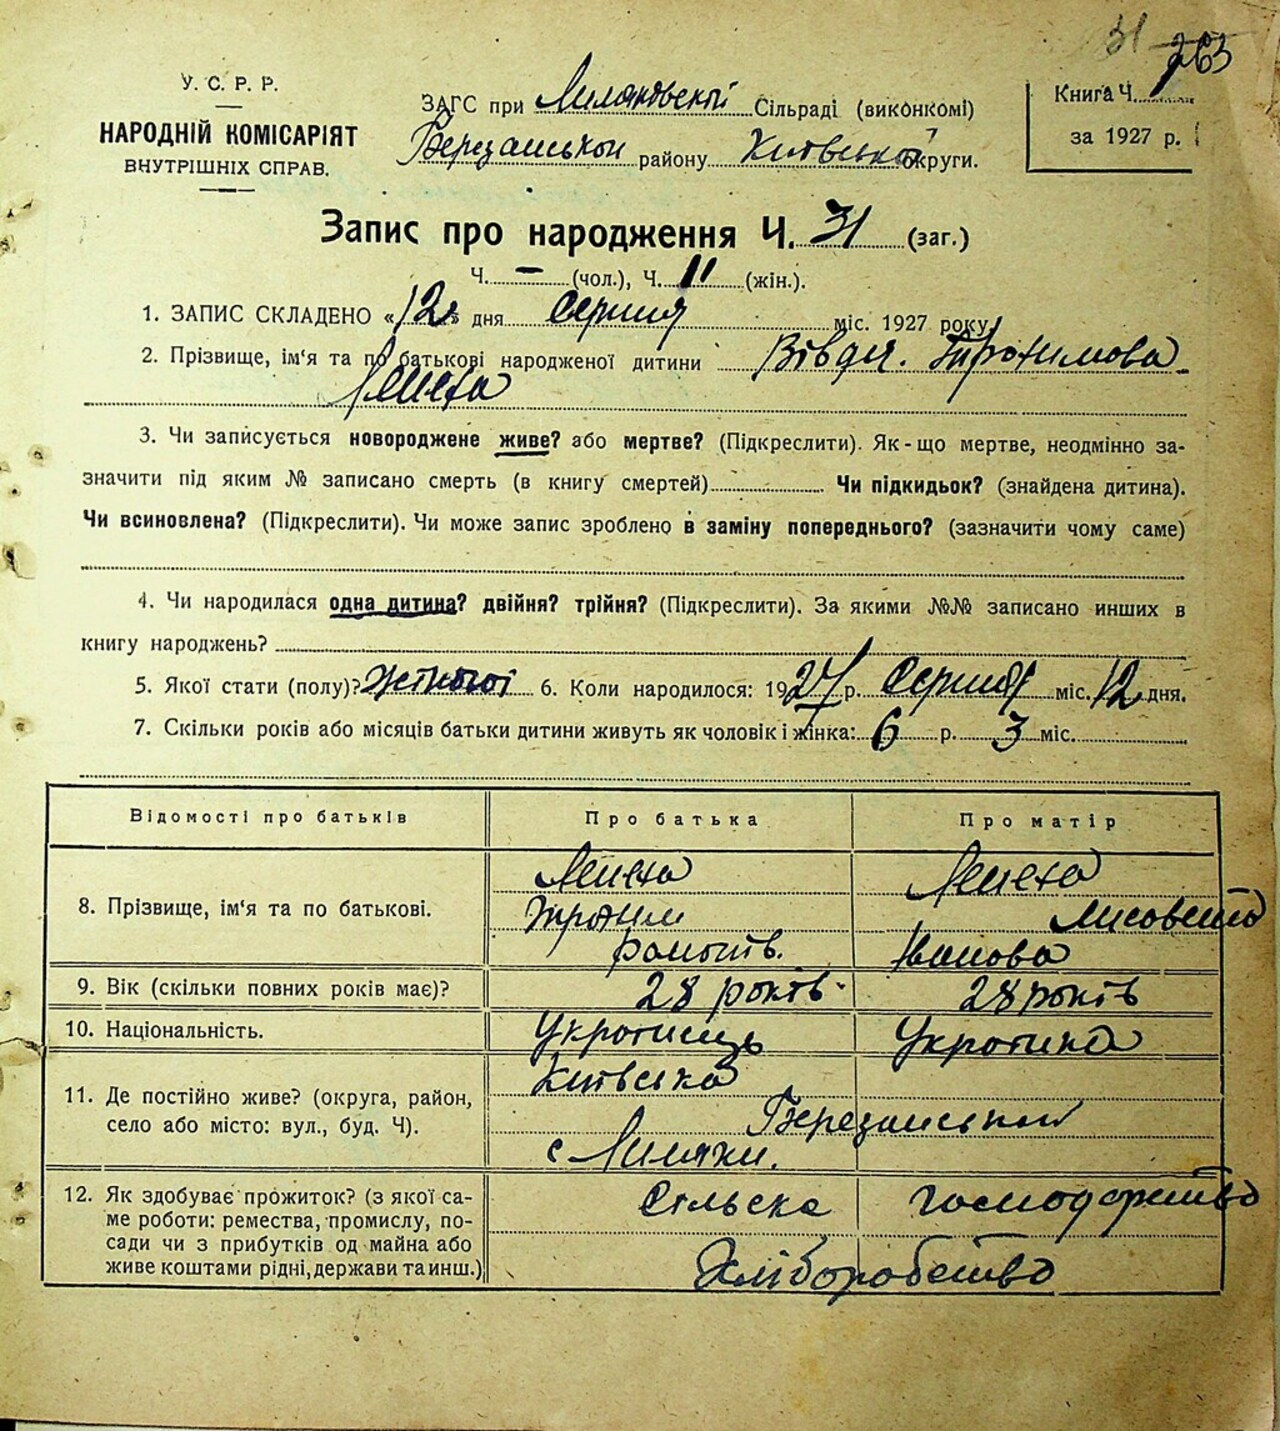 31 263
У. С. Р. Р.
НАРОДНІЙ КОМІСАРІЯТ
ВНУТРІШНІХ СПРАВ.
ЗАГС при Лиляковській Сільраді (виконкомі)
Березанської району Київської округи.
Книга Ч.
за 1927 р.
Запис про народження Ч. 31 (заг.)
Ч. – (чол.), Ч. 11 (жін.).
1. ЗАПИС СКЛАДЕНО «12» дня Серпня міс. 1927 року.
2. Прізвище, ім'я та по батькові народженої дитини Вівдя. Трохимова
Лепеха
3. Чи записується новороджене живе? або мертве? (Підкреслити). Як-що мертве, неодмінно за-
значити під яким № записано смерть (в книгу смертей) Чи підкидьок? (знайдена дитина).
Чи всиновлена? (Підкреслити). Чи може запис зроблено в заміну попереднього? (зазначити чому саме)
4. Чи народилася одна дитина? двійня? трійня? (Підкреслити). За якими №№ записано инших в
книгу народжень?
5. Якої стати (полу)? жіночої 6. Коли народилося: 1927 р. Серпня міс. 12 дня.
7. Скільки років або місяців батьки дитини живуть як чоловік і жінка: 6 р. 3 міс.
Відомості про батьків Про батька Про матір
8. Прізвище, ім'я та по батькові.
Лепеха Лепеха
Трохим
Іванова
9. Вік (скільки повних років має)? 28 років 28 років
10. Національність. Українець Українка
11. Де постійно живе? (округа, район,
село або місто: вул., буд. Ч).
Київська
Березанський
с Лиляки.
12. Як здобуває прожиток? (з якої са-
ме роботи: ремества, промислу, по-
сади чи з прибутків од майна або
живе коштами рідні, держави та инш.)
Сільске господарство
Хліборобство